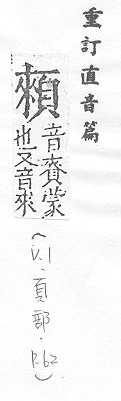 重訂直音篇
顂
音賚蒙
也又音來
(V.1·頁部·P.62)